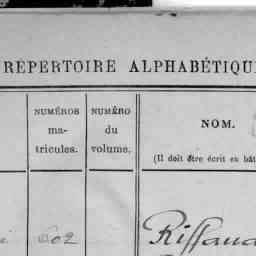 RÉPERTOIRE ALPHABÉTIQU
NUMÉROS
ma-
tricules.
NUMÉRO
du
volume.
NOM.
(Il doit être écrit en bât
602
Riffaud